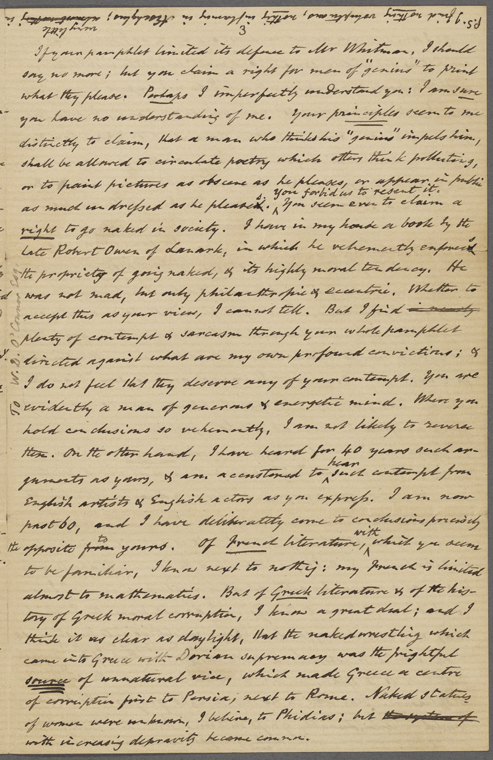 P.S. I find nothing voluptuous, nothing inflaming in
very little
3
If your pamphlet limited its defence to Mr Whitman, I should
say no more; but you claim a right for men of "genius" to print
what they please. Perhaps I imperfectly understand you: I am sure
you have no understanding of me. Your principles seem to me
distinctly to claim, that a man who thinks his "genius" impels him,
shall be allowed to circulate poetry which others think polluting,
or to paint pictures as obscene as he pleases, or appear in public
as much undressed as he pleases; you forbid us to resent it. You seem even to claim a
right to go naked in society. I have in my house a book by the
late Robert Owen of Lanark, in which he vehemently enforces
the propriety of going naked, & its highly moral tendency. He
was not mad, but only philanthropic & eccentric. Whether to
accept this as your view, I cannot tell. But I find
plenty of contempt & sarcasm through your whole pamphlet
directed against what are my own profound convictions; &
I do not feel that they deserve any of your contempt. You are
evidently a man of generous & energetic mind. Where you
hold conclusions so vehemently, I am not likely to reverse
them. On the other hand, I have heard for 40 years such ar-
guments as yours, & am accustomed to hear such contempt from
English artists & English actors as you express. I am now
past 60, and I have deliberately come to conclusions precisely
the opposite to yours. Of French literature, with which you seem
to be familiar, I know next to nothing: my French is limited
almost to mathematics. But of Greek literature & of the his-
tory of Greek moral corruption, I know a great deal; and I
think it as clear as daylight, that the naked wrestling which
came into Greece with Dorian supremacy was the frightful
source of unnatural vice, which made Greece a centre
of corruption first to Persia; next to Rome. Naked statues
of women were unknown, I believe, to Phidias; but the system of
with increasing depravity became common.
To W. D. O'Connor